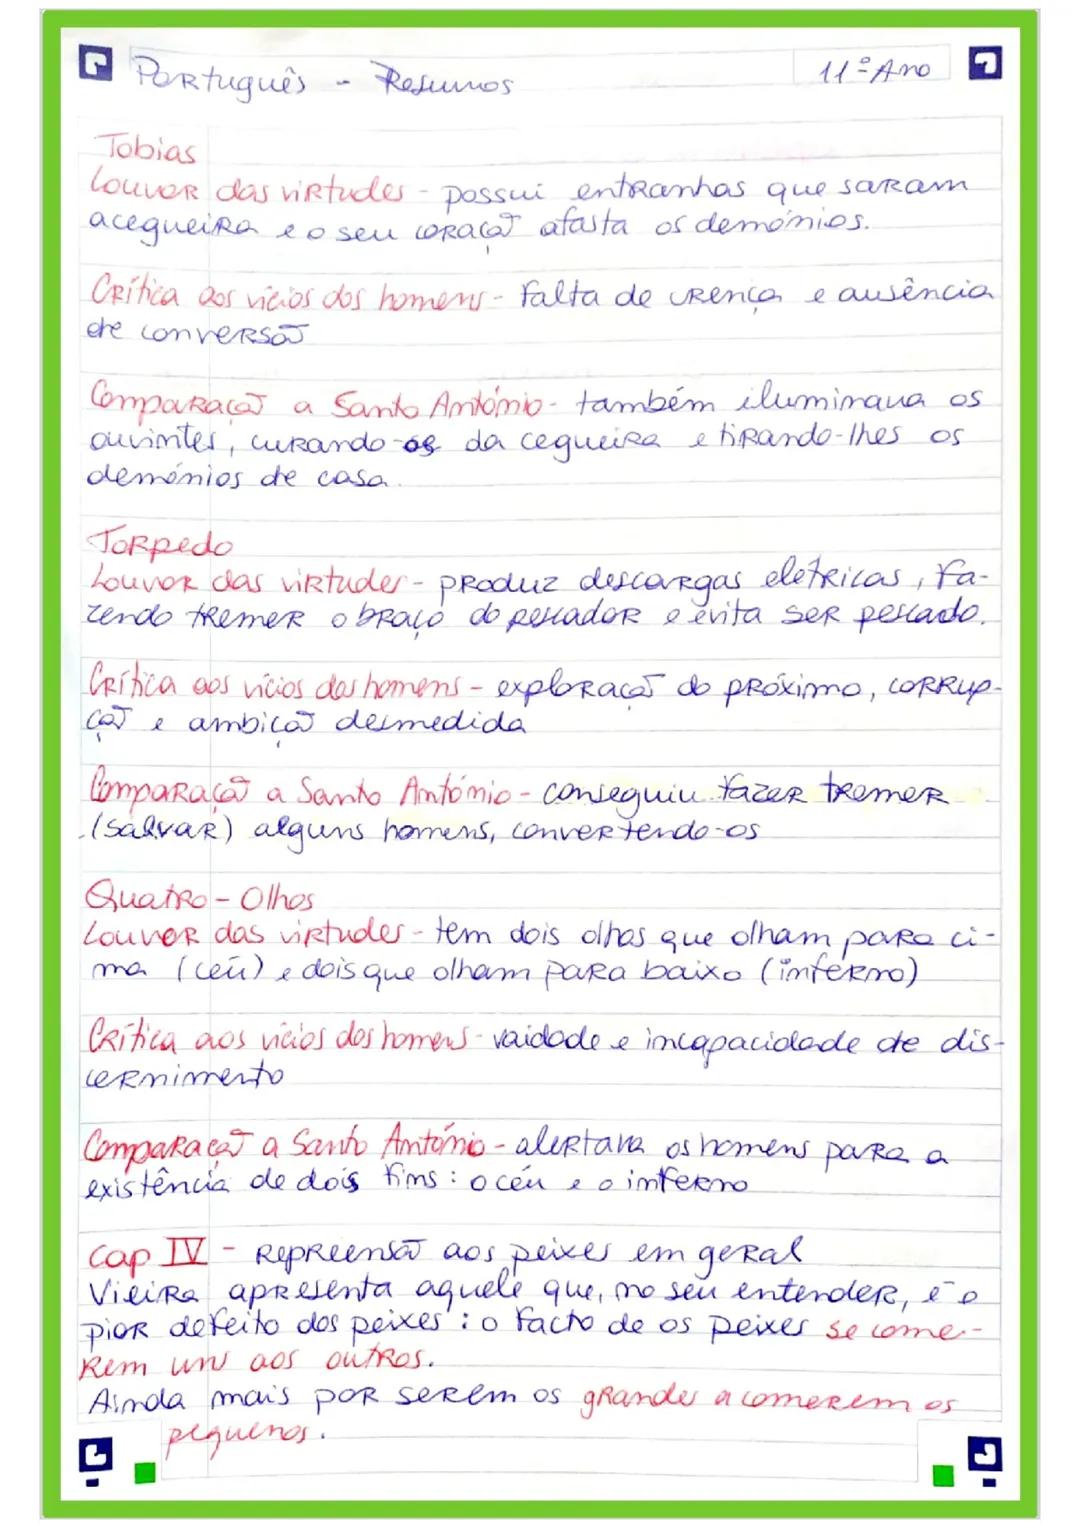 Português - Resumos
11º Ano
Tobias
Louvor das virtudes - possui entranhas que saram
a cegueira e o seu coração afasta os demónios.
Crítica aos vícios dos homens - falta de crença e ausência
de conversão
Comparação a Santo António - também iluminava os
ouvintes, curando-os da cegueira e tirando-lhes os
demónios de casa.
Torpedo
Louvor das virtudes - produz descargas eletricas, fa-
zendo tremer o braço do pescador e evita ser pescado.
Crítica aos vícios dos homens - exploração do próximo, corrup-
ção e ambição desmedida
Comparação a Santo António - conseguiu fazer tremer
(salvar) alguns homens, convertendo-os
Quatro-Olhos
Louvor das virtudes - tem dois olhos que olham para ci-
ma (céu) e dois que olham para baixo (inferno)
Crítica aos vícios dos homens - vaidade e incapacidade de dis-
cernimento
Comparação a Santo António - alertava os homens para a
existência de dois fins: o céu e o inferno
Cap IV - Repreensão aos peixes em geral
Vieira apresenta aquele que, no seu entender, é o
pior defeito dos peixes: o facto de os peixes se come-
rem uns aos outros.
Ainda mais por serem os grandes a comerem os
pequenos.